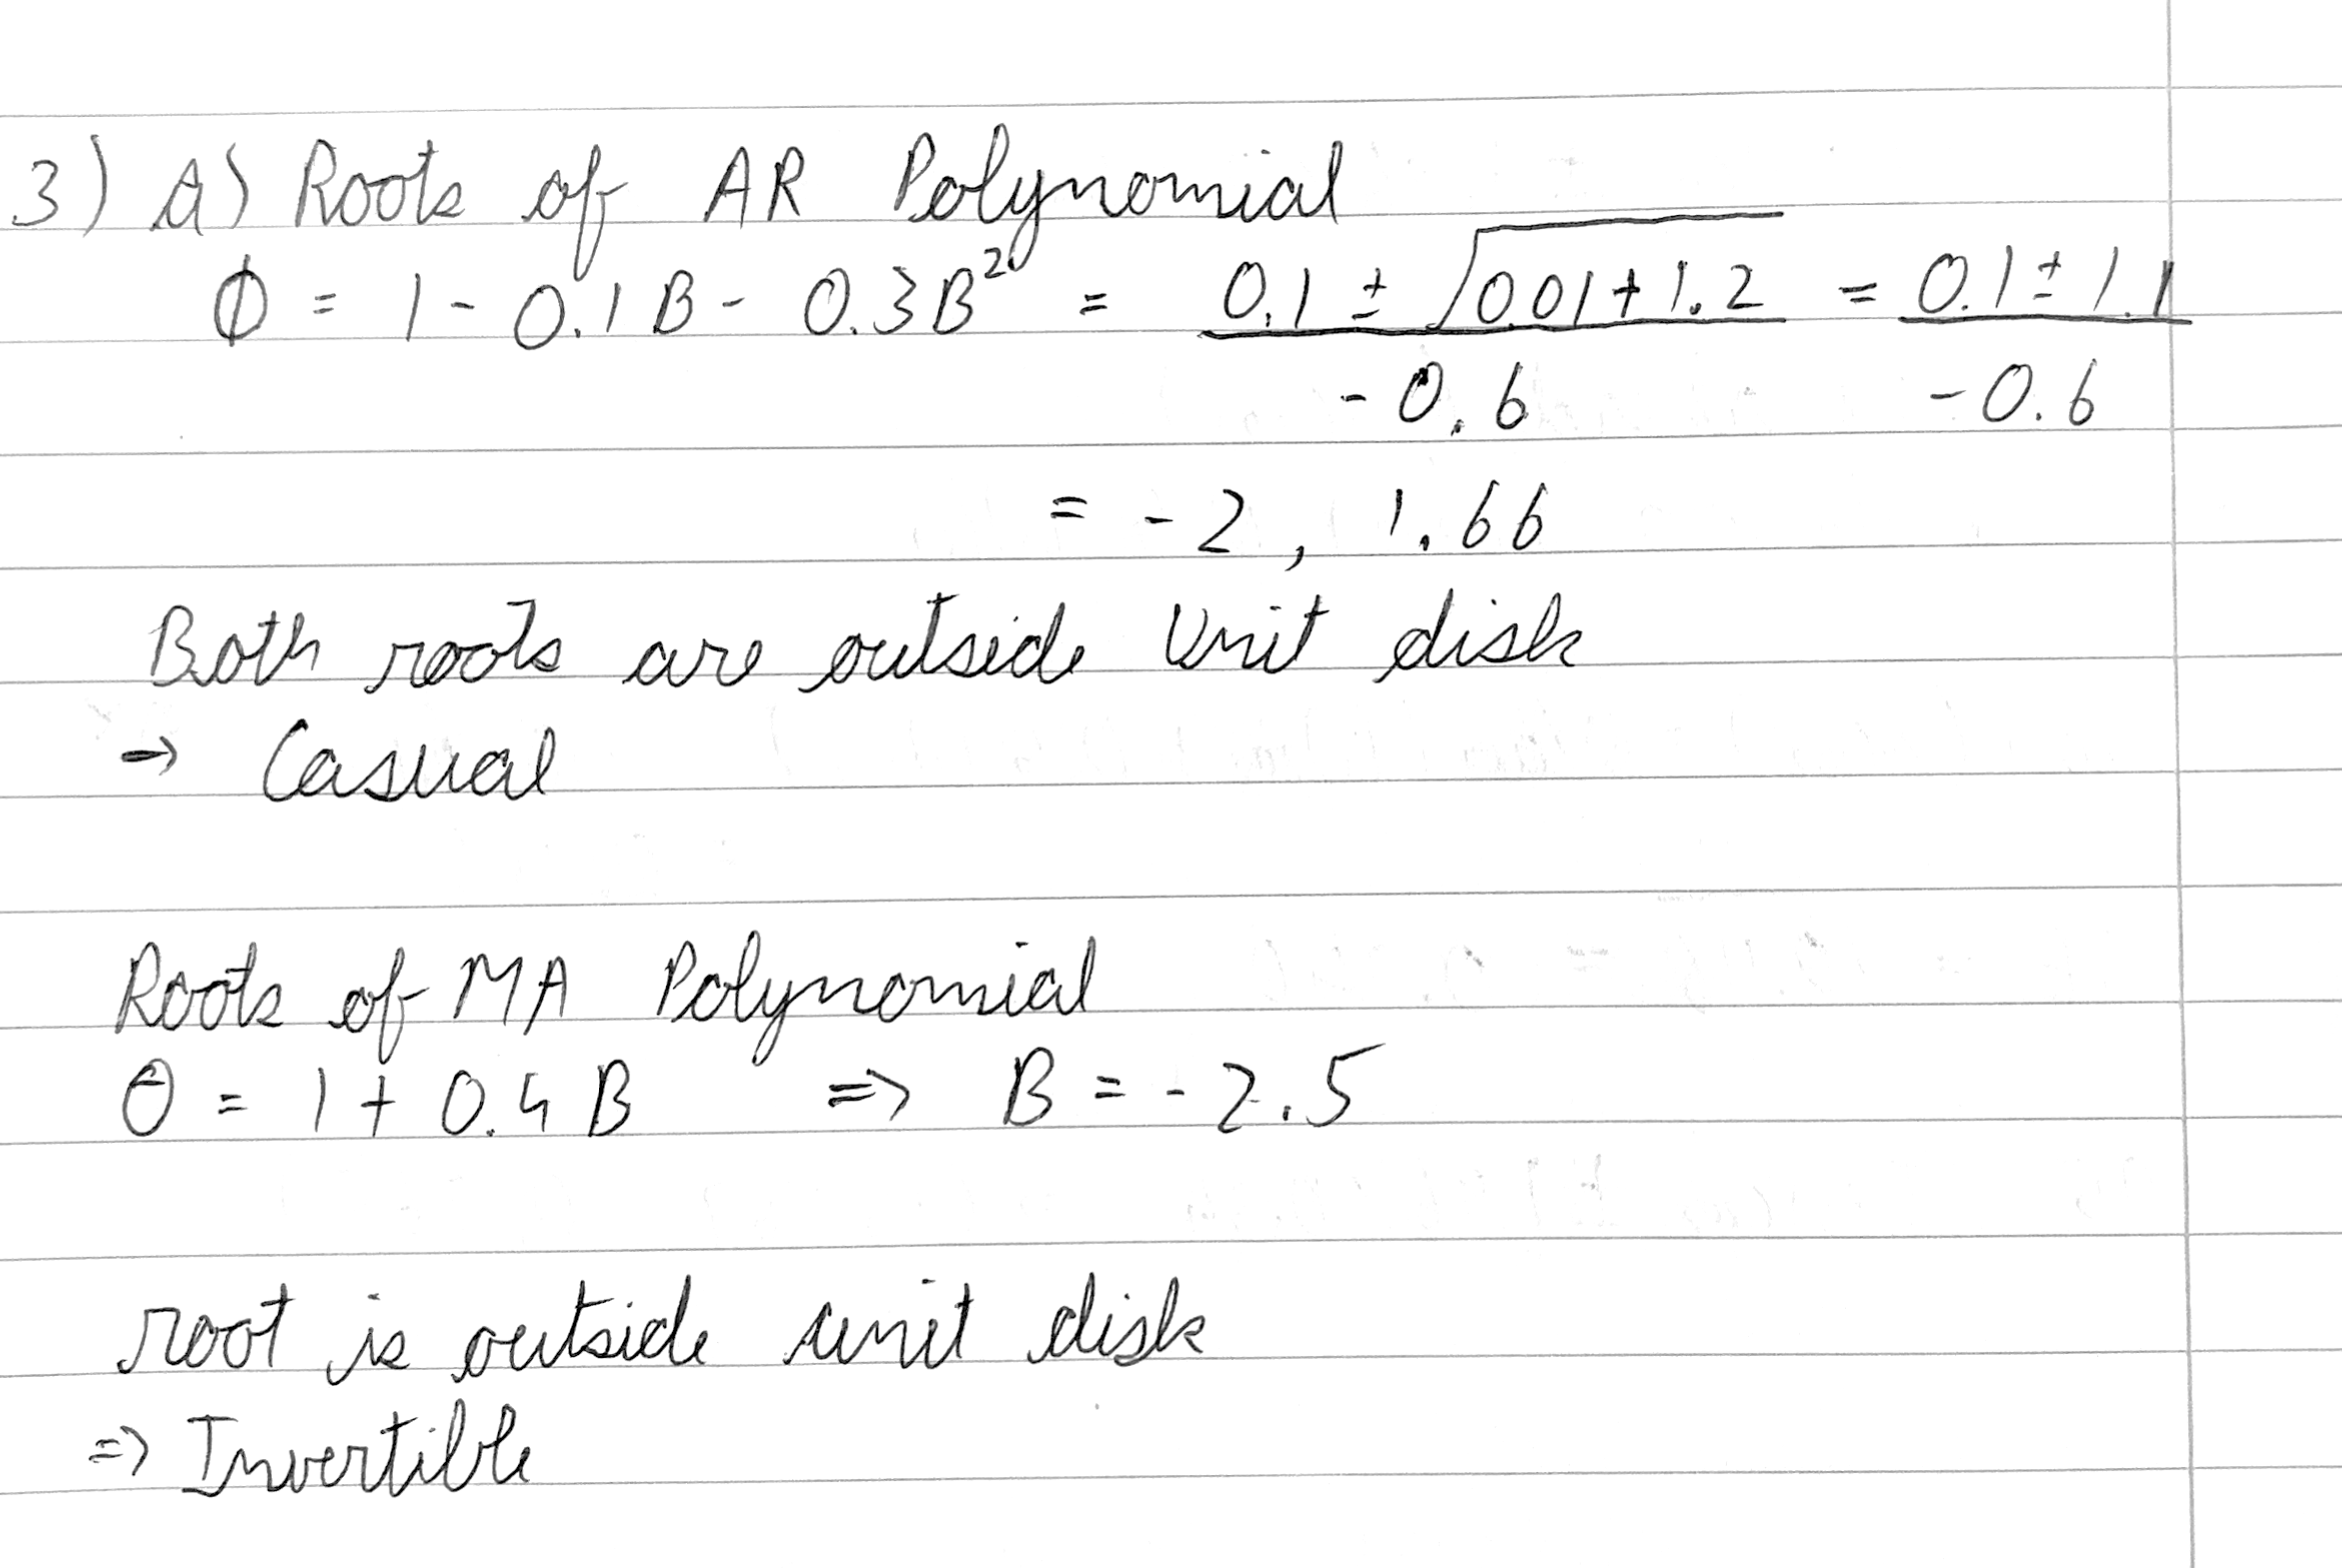 3) a) Roots of AR Polynomial
Φ = 1 - 0.1B - 0.3B² = (0.1 ± √(0.01 + 1.2)) / -0.6 = (0.1 ± 1.1) / -0.6
= -2, 1.66
Both roots are outside Unit disk
⇒ Casual
Roots of MA Polynomial
θ = 1 + 0.4B ⇒ B = -2.5
root is outside unit disk
⇒ Invertible